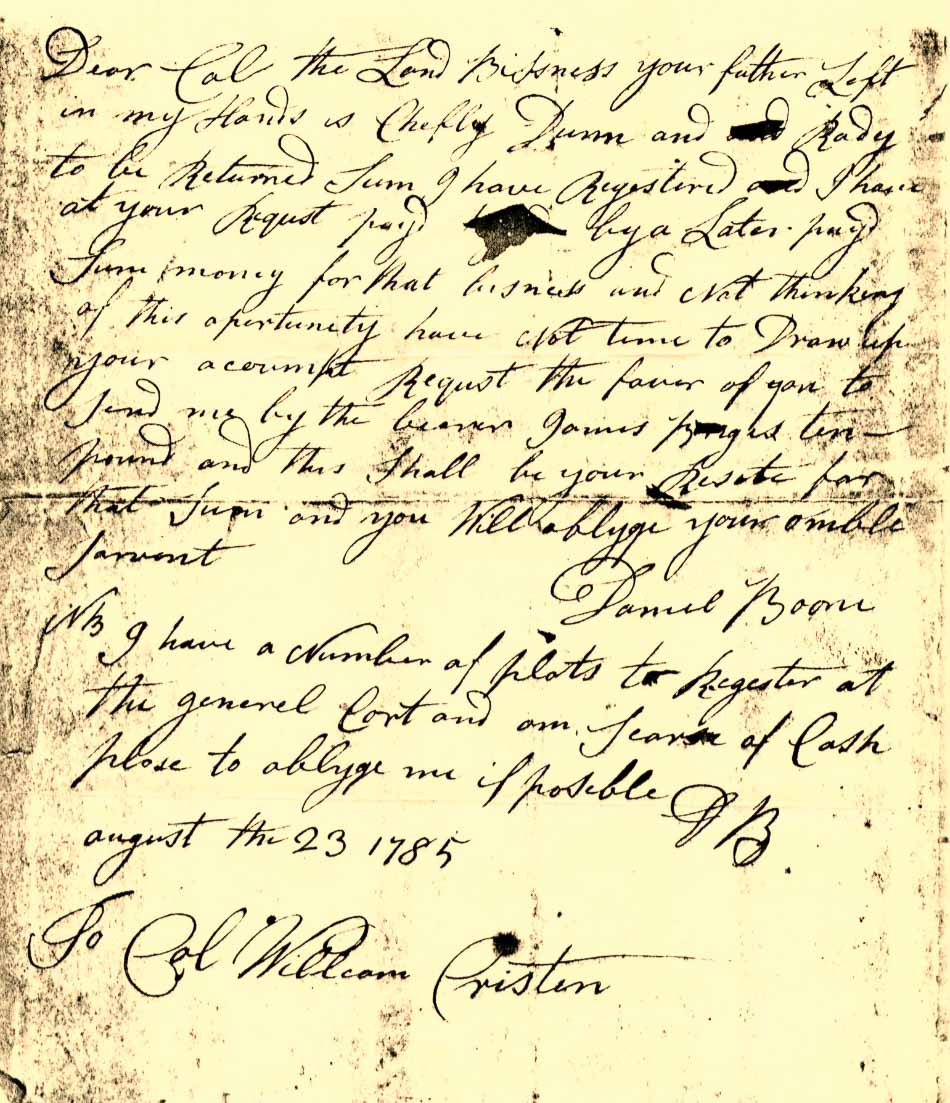 Dear Col the Land Bisness your father Left
in my Hands is Chefly Dunn and Rady
to be Returned Sum I have Regestered and I have
at your Requst payd by a Later payd
Sum money for that bisness and Not thinking
of this opertunity have Not time to Draw up
your acoumpt Requst the faver of you to
send me by the bearer James ten
pound and this Shall be your Resete for
that Sum and you Will oblyge your omble
sarvent
Daniel Boone
NB I have a Number of plots to Register at
the generel Cort and am Scarse of Cash
plese to oblyge me if poseble
D B
august the 23 1785
To Col William Cristen